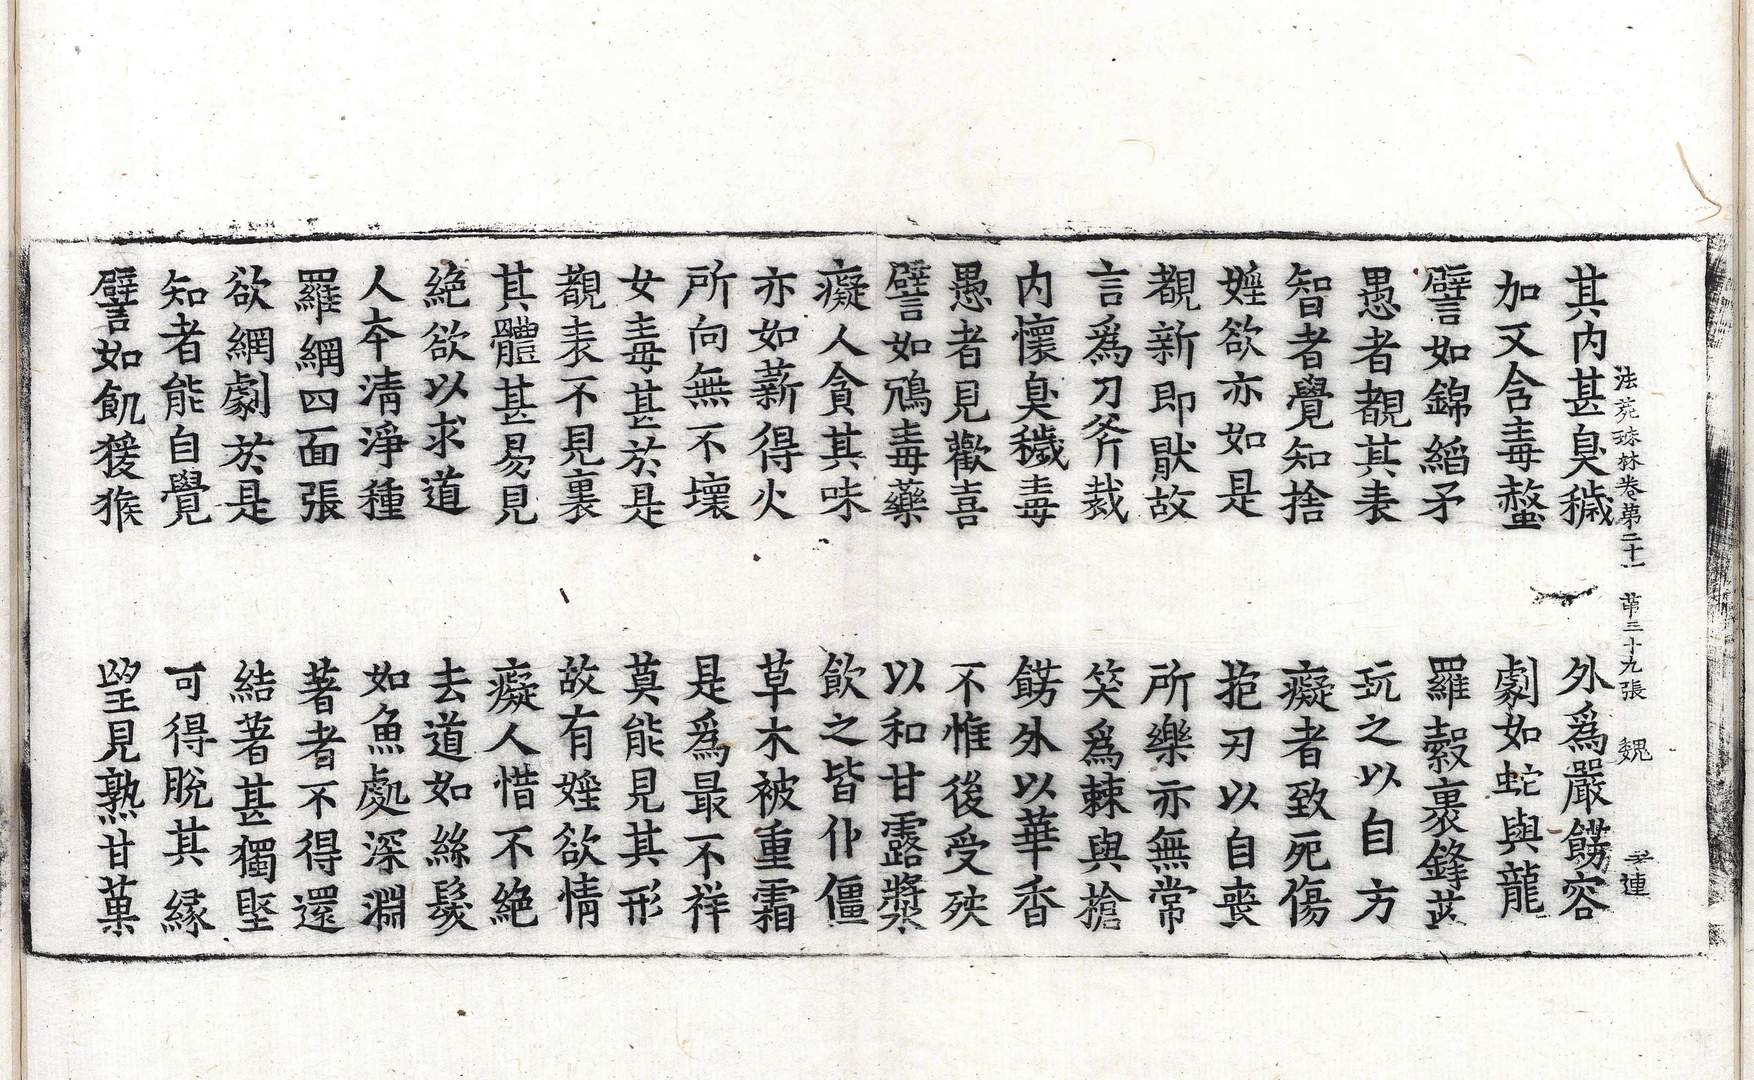 法苑珠林卷第二十一 第三十九張 魏
其内甚臭穢 外為嚴餝容
加又含毒螫 劇如蛇與龍
譬如錦縚矛 羅縠裹鋒芒
愚者覩其表 玩之以自方
智者覺知捨 癡者致死傷
婬欲亦如是 抱刃以自喪
覩新即猒故 所樂亦無常
言爲刀斧裁 笑爲棘與槍
内懷臭穢毒 餝外以華香
愚者見歡喜 不惟後受殃
譬如鴆毒藥 以和甘露漿
癡人貪其味 飲之皆仆僵
亦如薪得火 草木被重霜
所向無不壞 是爲最不祥
女毒甚於是 莫能見其形
覩表不見裏 故有婬欲情
其體甚易見 癡人惜不絶
絶欲以求道 去道如絲髮
人夲清淨種 如魚處深淵
羅網四面張 著者不得還
欲網劇於是 結著甚獨堅
知者能自覺 可得脫其縁
譬如飢猨猴 望見熟甘菓